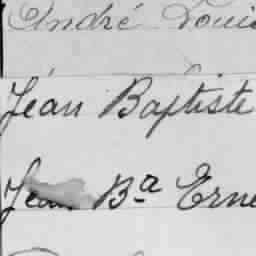 André Louis
Jean Baptiste
Jean Bª Erne